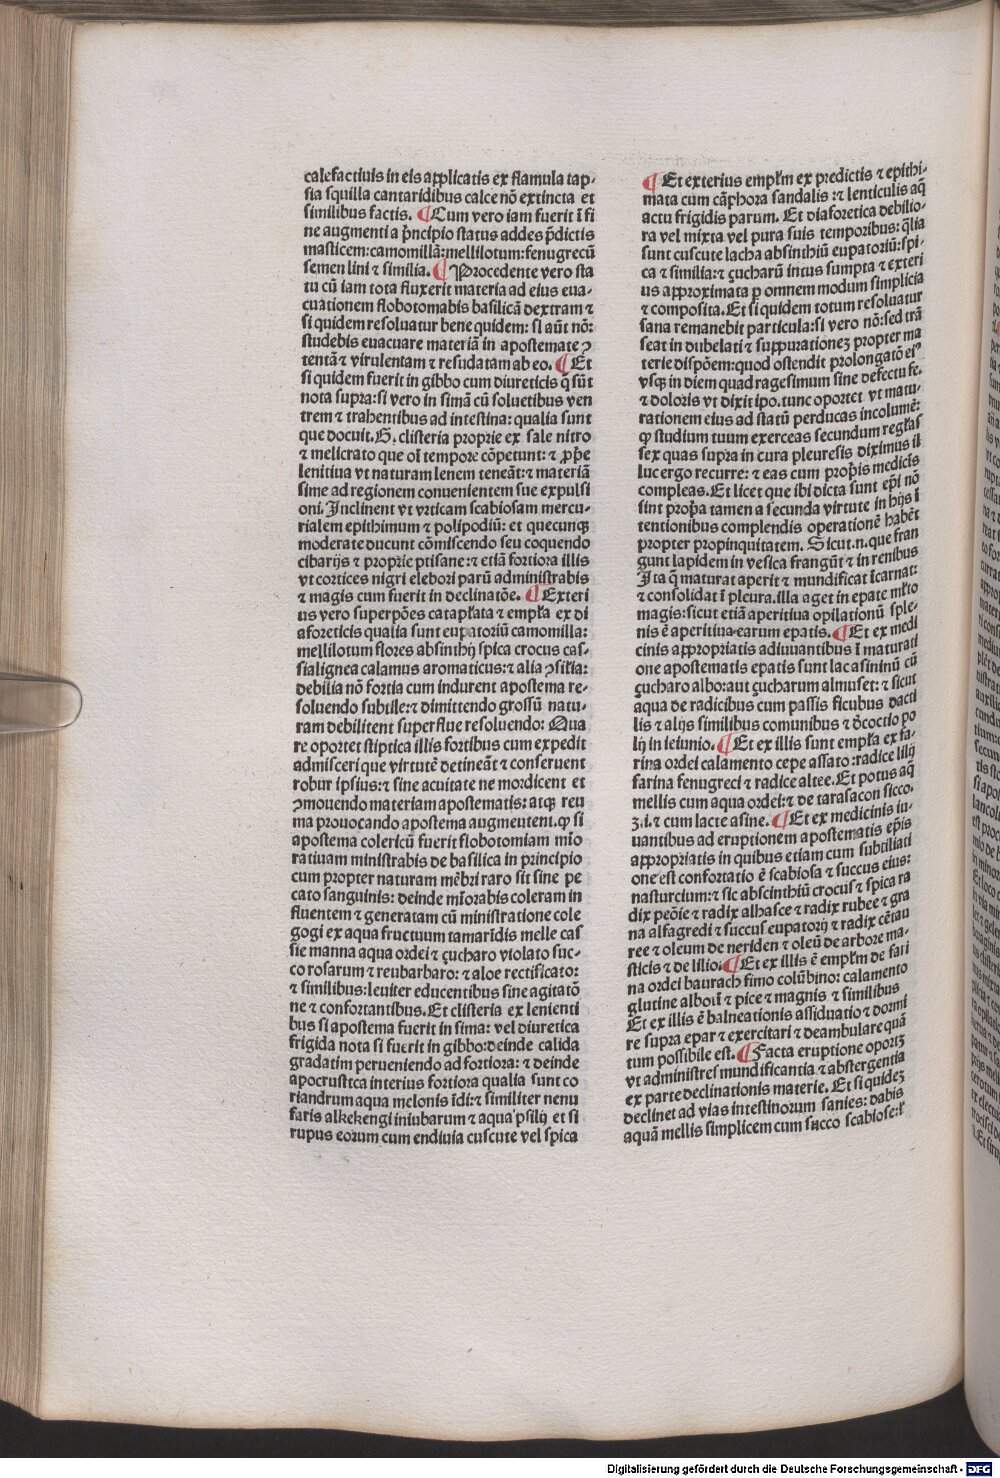 calefactiuis in eis applicatis ex flamula tap⸗
sia squilla cantaridibus calce nō extincta et
similibus factis. ¶ Cum vero iam fuerit ī fi
ne augmenti a p̄ncipio status addes p̄dictis
masticem: camomillā: mellilotum: fenugrecū
semen lini ⁊ similia. ¶ Procedente vero sta
tu cū iam tota fluxerit materia ad eius eua⸗
cuationem flobotomabis basilicā dextram ⁊
si quidem resoluatur bene quidem: si aūt nō:
studebis euacuare materiā in apostemate ꝯ
tentā ⁊ virulentam ⁊ resudatam ab eo. ¶ Et
si quidem fuerit in gibbo cum diureticis q̄ sūt
nota supra: si vero in simā cū soluetibus ven
trem ⁊ trahentibus ad intestina: qualia sunt
que docuit. G. clisteria proprie ex sale nitro
⁊ melicrato que oī tempore cōpetunt: ⁊ ꝓp̄e
lenitiua vt naturam lenem teneāt: ⁊ materiā
sime ad regionem conuenientem sue expulsi
oni. Inclinent vt vrticam scabiosam mercu⸗
rialem epithimum ⁊ polipodiū: et quecunqꝫ
moderate ducunt cōmiscendo seu coquendo
cibarijs ⁊ proprie ptisane: ⁊ etiā fortiora illis
vt cortices nigri elebori parū administrabis
⁊ magis cum fuerit in declinatōe. ¶ Exteri
us vero superpōes catapl̄ata ⁊ empl̄a ex di
aforeticis qualia sunt eupatoriū camomilla:
mellilotum flores absinthij spica crocus cas⸗
sialignea calamus aromaticus: ⁊ alia ꝯsil̄ia:
debilia nō fortia cum indurent apostema re⸗
soluendo subtile: ⁊ dimittendo grossū natu⸗
ram debilitent superflue resoluendo: Qua
re oportet stiptica illis fortibus cum expedit
admisceri que virtutē detineāt ⁊ conseruent
robur ipsius: ⁊ sine acuitate ne mordicent et
ꝯmouendo materiam apostematis: atqꝫ reu
ma prouocando apostema augmeutent. ꝙ si
apostema colericū fuerit flobotomiam mīo
ratiuam ministrabis de basilica in principio
cum propter naturam mēbri raro sit sine pe
cato sanguinis: deinde mīorabis coleram in
fluentem ⁊ generatam cū ministratione cole
gogi ex aqua fructuum tamarīdis melle cas
sie manna aqua ordei ⁊ çucharo violato suc⸗
co rosarum ⁊ reubarbaro: ⁊ aloe rectificato:
⁊ similibus: leuiter educentibus sine agitatō
ne ⁊ confortantibus. Et clisteria ex lenienti
bus si apostema fuerit in sima: vel diuretica
frigida nota si fuerit in gibbo: deinde calida
gradatim perueniendo ad fortiora: ⁊ deinde
apocrustica interius fortiora qualia sunt co
riandrum aqua melonis īdi: ⁊ similiter nenu
faris alkekengi iniubarum ⁊ aqua psilij et si
rupus eorum cum endiuia cuscute vel spica
¶ Et exterius empl̄m ex predictis ⁊ epithi⸗
mata cum cāphora sandalis: ⁊ lenticulis aq̄
actu frigidis parum. Et diaforetica debilio⸗
ra vel mixta vel pura suis temporibus: q̄lia
sunt cuscute lacha absinthiū eupatoriū: spi⸗
ca ⁊ similia: ⁊ çucharū intus sumpta ⁊ exteri
us approximata ꝑ omnem modum simplicia
⁊ composita. Et si quidem totum resoluatur
sana remanebit particula: si vero nō: sed trā
seat in dubelati ⁊ suppurationeꝫ propter ma
terie dispōem: quod ostendit prolongatō ei⁹
vsqꝫ in diem quadragesimum sine defectu fe.
⁊ doloris vt dixit ipo. tunc oportet vt matu⸗
rationem eius ad statū perducas incolumē:
ꝙ studium tuum exerceas secundum regl̄as
sex quas supra in cura pleuresis diximus il
luc ergo recurre: ⁊ eas cum prop̄is medicīs
compleas. Et licet que ibi dicta sunt ep̄i nō
sint prop̄a tamen a secunda virtute in hijs ī
tentionibus complendis operationē habēt
propter propinquitatem. Sicut .n. que fran
gunt lapidem in vesica frangūt ⁊ in renibus
Ita q̄ maturat aperit ⁊ mundificat īcarnat:
⁊ consolidat ī pleura. illa aget in epate ml̄to
magis: sicut etiā aperitiua opilationū sple⸗
nis ē aperitiua earum epatis. ¶ Et ex medi
cinis appropriatis adiuuantibus ī maturati
one apostematis epatis sunt lac asininū cū
çucharo albo: aut çucharum almuset: ⁊ sicut
aqua de radicibus cum passis ficubus dacti
lis ⁊ alijs similibus comunibus ⁊ d̄coctio po
lij in ieiunio. ¶ Et ex illis sunt empl̄a ex fa⸗
rina ordei calamento cepe assato: radice lilij
farina fenugreci ⁊ radice altee. Et potus aq̄
mellis cum aqua ordei: ⁊ de tarasacon sicco.
ʒ.i. ⁊ cum lacte asine. ¶ Et ex medicinis iu⸗
uantibus ad eruptionem apostematis ep̄is
appropriatis in quibus etiam cum subtiliati
one est confortatio ē scabiosa ⁊ succus eius:
nasturcium: ⁊ sic abscinthiū crocus ⁊ spica ra
dix peōie ⁊ radix alhasce ⁊ radix rubee ⁊ gra
na alfagredi ⁊ succus eupatorij ⁊ radix cētau
ree ⁊ oleum de neriden ⁊ oleū de arbore ma⸗
sticis ⁊ de lilio: ¶ Et ex illis ē empl̄m de fari
na ordei baurach fimo colūbino: calamento
glutine alboui ⁊ pice ⁊ magnis ⁊ similibus
Et ex illis ē balneationis assiduatio ⁊ dormi
re supra epar ⁊ exercitari ⁊ deambulare quā
tum possibile est. ¶ Facta eruptione oportꝫ
vt administres mundificantia ⁊ abstergentia
ex parte declinationis materie. Et si quideꝫ
declinet ad vias intestinorum sanies: dabis
aquā mellis simplicem cum succo scabiose: ł